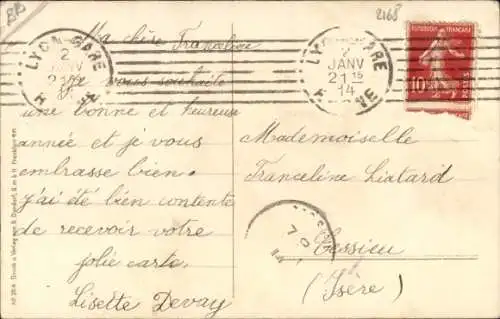 2168
Ma chère Franceline
Je vous souhaite
une bonne et heureuse
année et je vous
embrasse bien.
j'ai été bien contente
de recevoir votre
jolie carte.
Lisette Devay
LYON-GARE
2
JANV
21 15
14
RHONE
LYON-GARE
2
JANV
21 15
RHONE
REPUBLIQUE FRANÇAISE
10
POSTES
Mademoiselle
Franceline Liatard
Cessieu
(Isère)